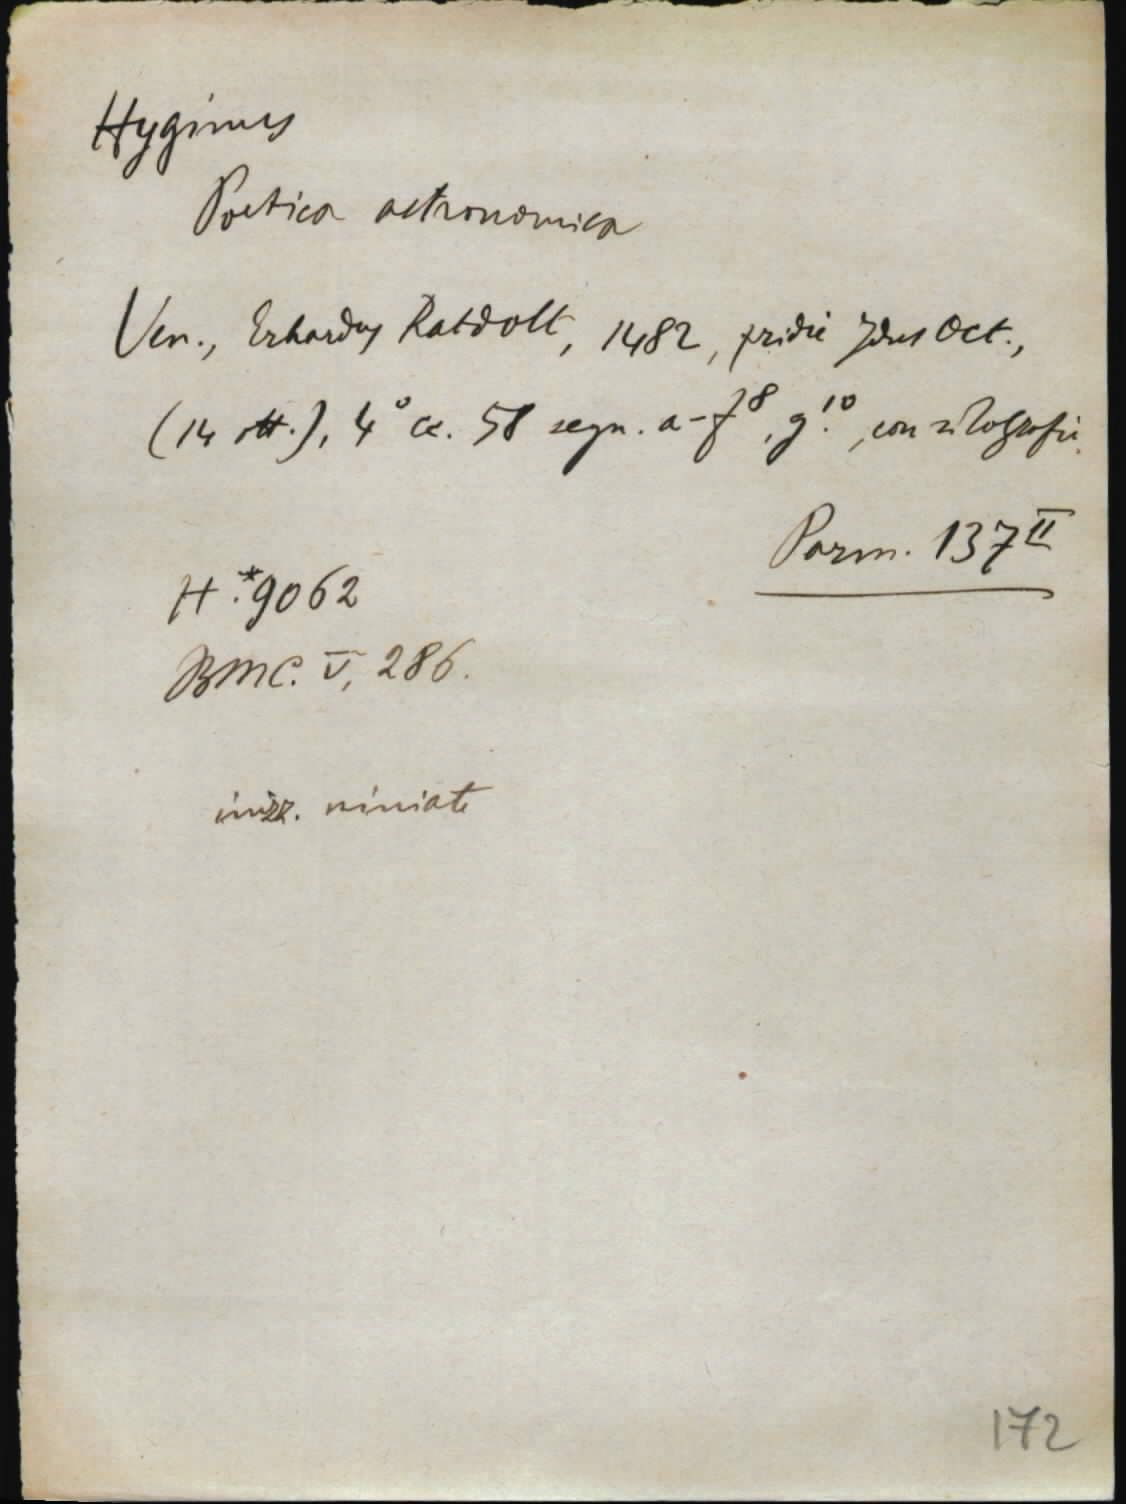 Hyginus
Poetica astronomica
Ven., Erhardus Ratdolt, 1482, pridie Idus Oct.,
(14 ott.), 4° cc. 58 segn. a-f⁸, g¹⁰, con silografie.
Parm. 137 II
H.*9062
BMC. V, 286.
inizz. miniate
172